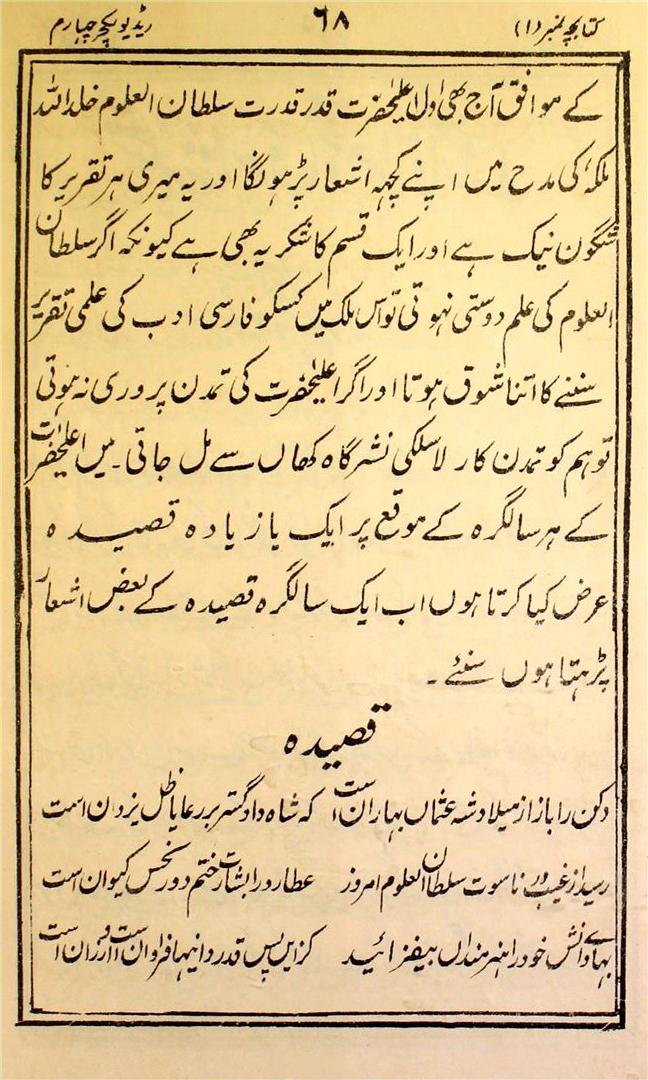 کتابچہ نمبر (۱) ۶۸ ریڈیو لکچر چہارم
کے موافق آج بھی اول اعلیٰحضرت قدر قدرت سلطان العلوم خلد اللہ
ملکہٗ کی مدح میں اپنے کچہہ اشعار پڑہونگا اور یہ میری ہر تقریر کا
شگون نیک ہے اور ایک قسم کا شکریہ بھی ہے کیونکہ اگر سلطان
العلوم کی علم دوستی نہوتی تو اس ملک میں کسکو فارسی ادب کی علمی تقریر
سننے کا اتنا شوق ہوتا اور اگر اعلیٰحضرت کی تمدن پروری نہ ہوتی
تو ہم کو تمدن کار لاسلکی نشرگاہ کھاں سے مل جاتی۔ میں اعلیٰحضرت
کے ہر سالگرہ کے موقع پر ایک یا زیادہ قصیدہ
عرض کیا کرتا ہوں اب ایک سالگرہ قصیدہ کے بعض اشعار
پڑہتا ہوں سنئے۔
قصیدہ
دکن را باز از میلاد شہ عثماں بہاران است کہ شاہ دادگستر بر رعایا ظل یزدان است
رسید از غیب در ناسوت سلطان العلوم امروز عطارد را بشارت ختم دور نحس کیوان است
بہاے دانش خود را ہنرمنداں بیفزائید کزایں پس قدردانیہا فراوان است و ارزان است